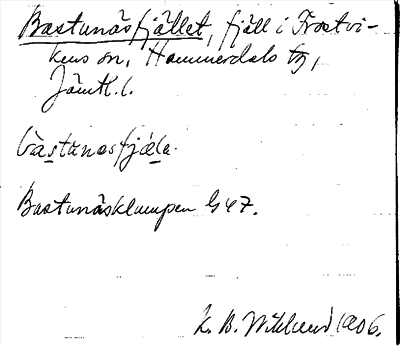 Bastunäsfjället, fjäll i Frostvi-
kens sn, Hammerdals tg,
Jämtl. l.
Bastunäsklumpen G 47.
K. B. Wiklund 1906.